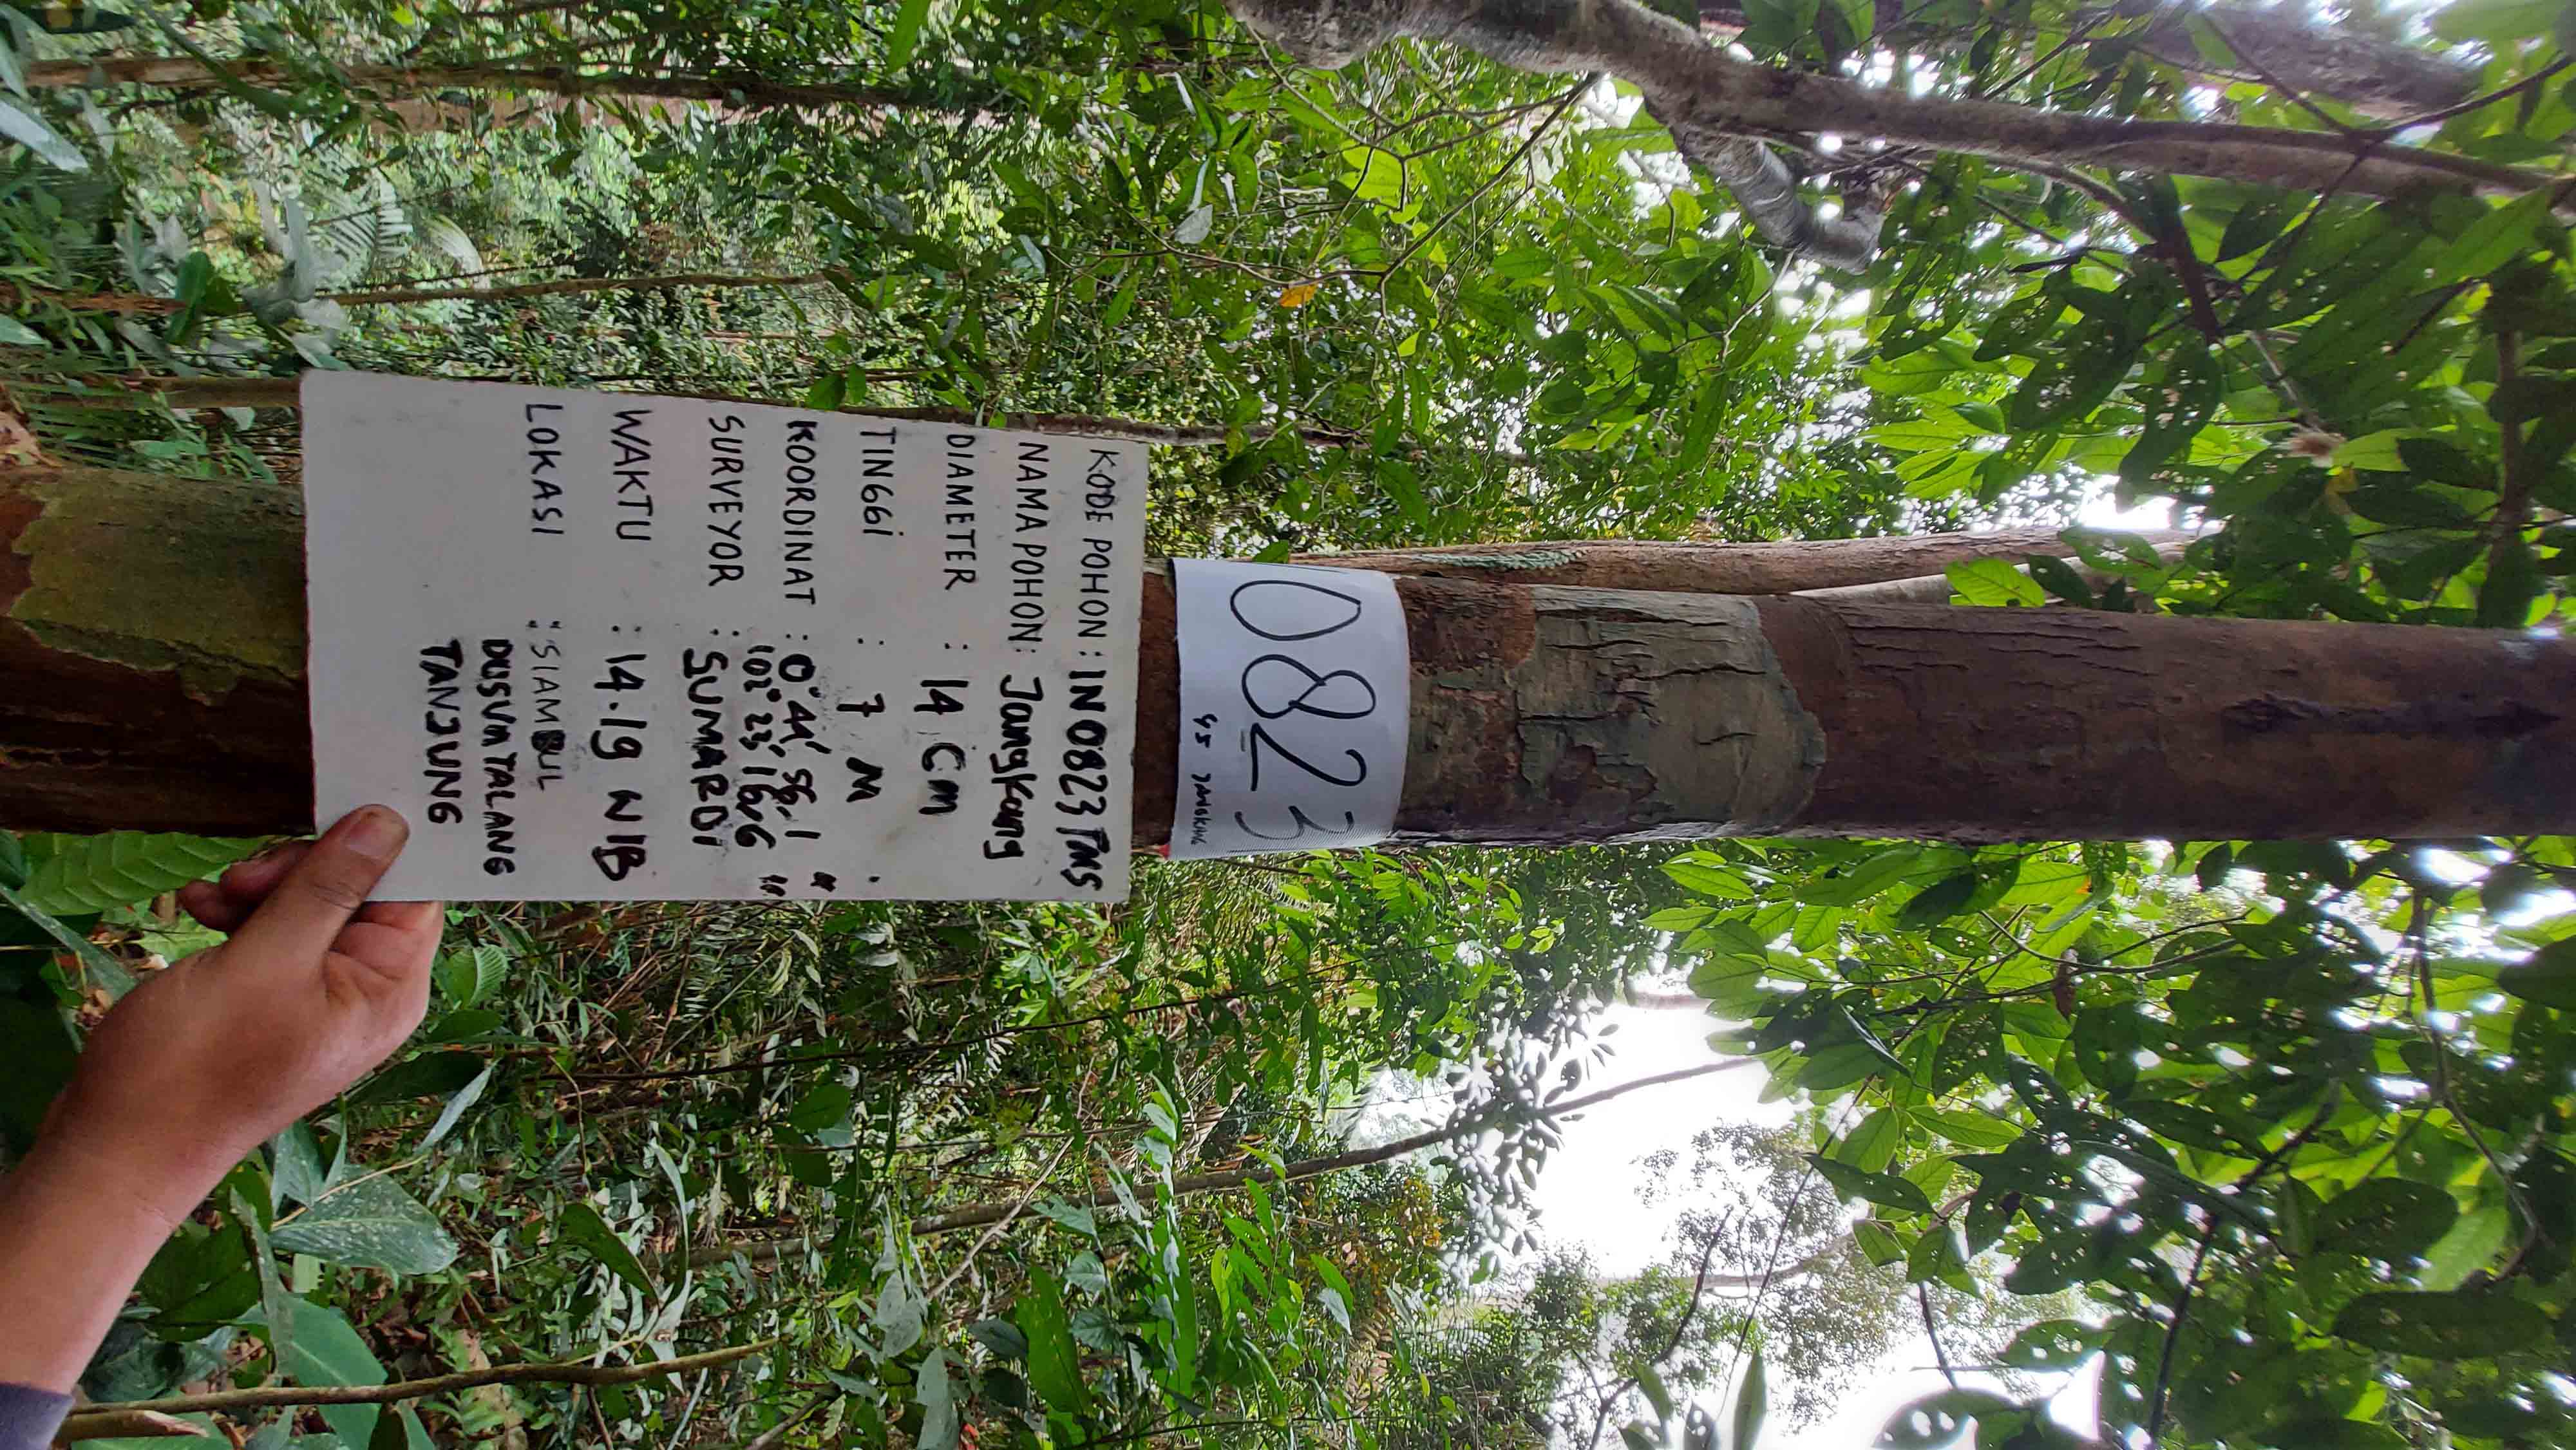 0823
45 JANGKANG
KODE POHON : IN0823TMS
NAMA POHON : Jangkang
DIAMETER : 14 Cm
TINGGI : 7 M
KOORDINAT : 0° 44' 56,1
102° 23' 16,6
SURVEYOR : SUMARDI
WAKTU : 14.19 WIB
LOKASI : SIAMBUL
DUSUN TALANG
TANJUNG